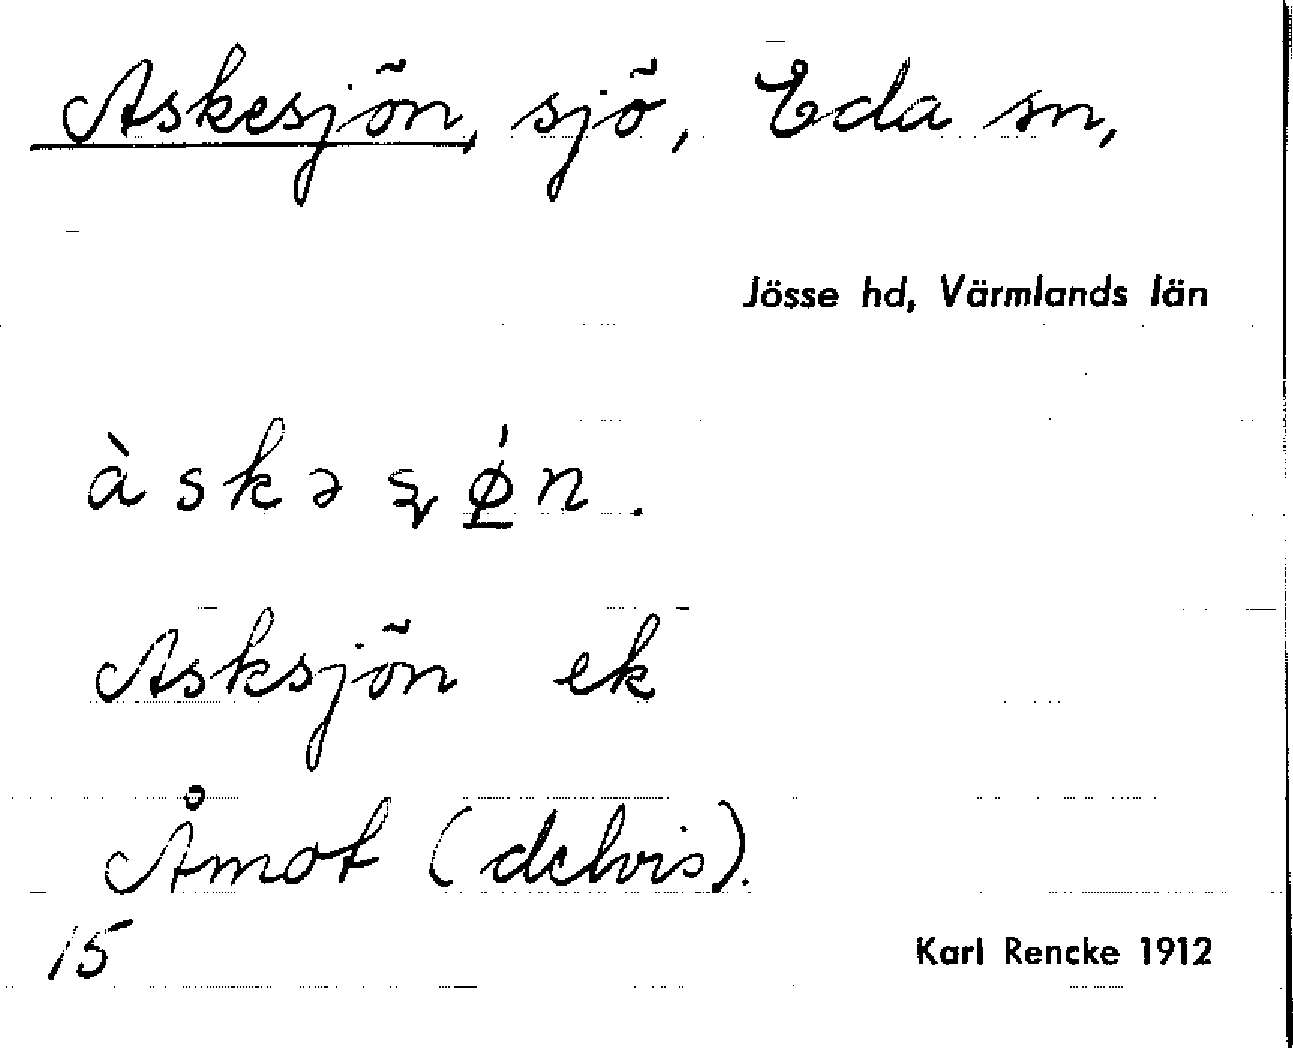 Askesjön, sjö, Eda sn,
Jösse hd, Värmlands län
àskə ʂǿ̲n.
Asksjön ek
Åmot (delvis).
15
Karl Rencke 1912